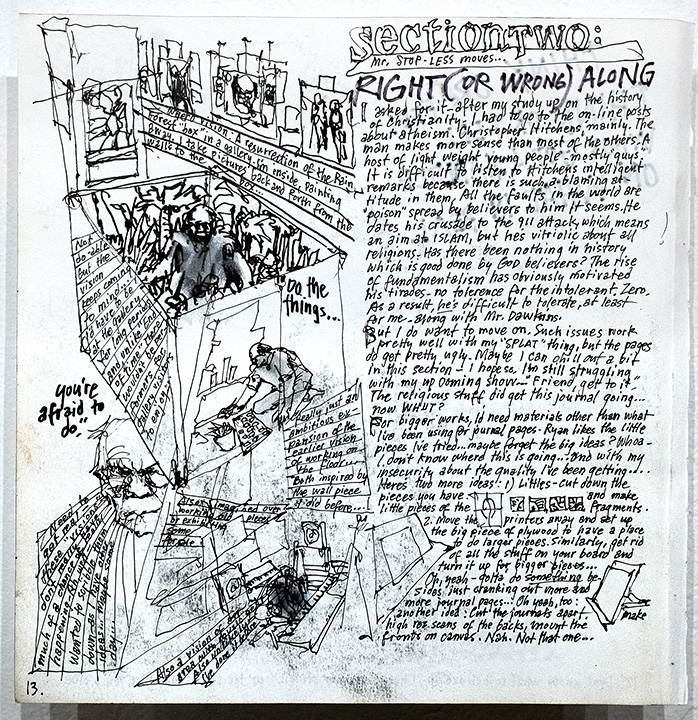 section TWO:
Mr. STOP-LESS moves...
RIGHT (OR WRONG) ALONG
I asked for it-after my study up on the history
of Christianity. I had to go to the on-line posts
about atheism. Christopher Hitchens, mainly. The
man makes more sense than most of the others. A
host of light weight young people-mostly guys.
It is difficult to listen to Hitchens intelligent
remarks because there is such a blaming at-
titude in them, All the faults in the world are
"poison" spread by believers to him it seems. He
dates his crusade to the 911 attack, which means
an aim at ISLAM, but he's vitriolic about all
religions. Has there been nothing in history
which is good done by GOD believers? The rise
of fundamentalism has obviously motivated
his tirades-no tolerence for the intolerant, Zero.
As a result, he's difficult to tolerate, at least
for me-along with Mr. Dawkins.
But I do want to move on. Such issues work
pretty well with my "SPLAT" thing, but the pages
do get pretty ugly. Maybe I can chill out a bit
in this section-I hope so. I'm still struggling
with my up coming show-"Friend, get to it"
The religious stuff did get this journal going...
now WHUT?
For bigger works, I'd need materials other than what
I've been using for journal pages-Ryan likes the little
pieces I've tried...maybe forget the big ideas? Whoa-
I don't know where this is going...and with my
insecurity about the quality I've been getting....
Heres two more ideas: 1) Littles-cut down the
pieces you have and make
little pieces of the fragments.
2. Move the printers away and set up
the big piece of plywood to have a place
to do larger pieces. Similarly, get rid
of all the stuff on your board and
turn it up for bigger pieces...
Oh, yeah-gotta do something be-
sides just cranking out more and
more journal pages... Oh yeah, too:
another idea: Cut the journals apart,
high rez scans of the backs, mount the
fronts on canvas. Nah. Not that one...
make
vision: A resurrection of the Rain
Forest "box" in a gallery. I'm inside, Painting
away. I take pictures back and forth from the
walls to the box
Not
do-able
But the
vision
keeps coming
to mind-
I'd have to
be at the gallery
for long periods
and unlike Eric
of course there
wouldn't be any
for
gallery visitors
to enjoy
"Do the
things...
you're
afraid to
do."
Really just an
ambitious ex-
pansion of the
earlier vision
of working on
the floor...
Both inspired by
the wall piece
I did before...
Also
working
or exhibit
some
for sale
over
all
pieces
Need to
Don't
much of a chance of that
happening
Wanted to get the
down as I had
ideas maybe some
day...
Also a vision of
area
Also
I've done it before
13.